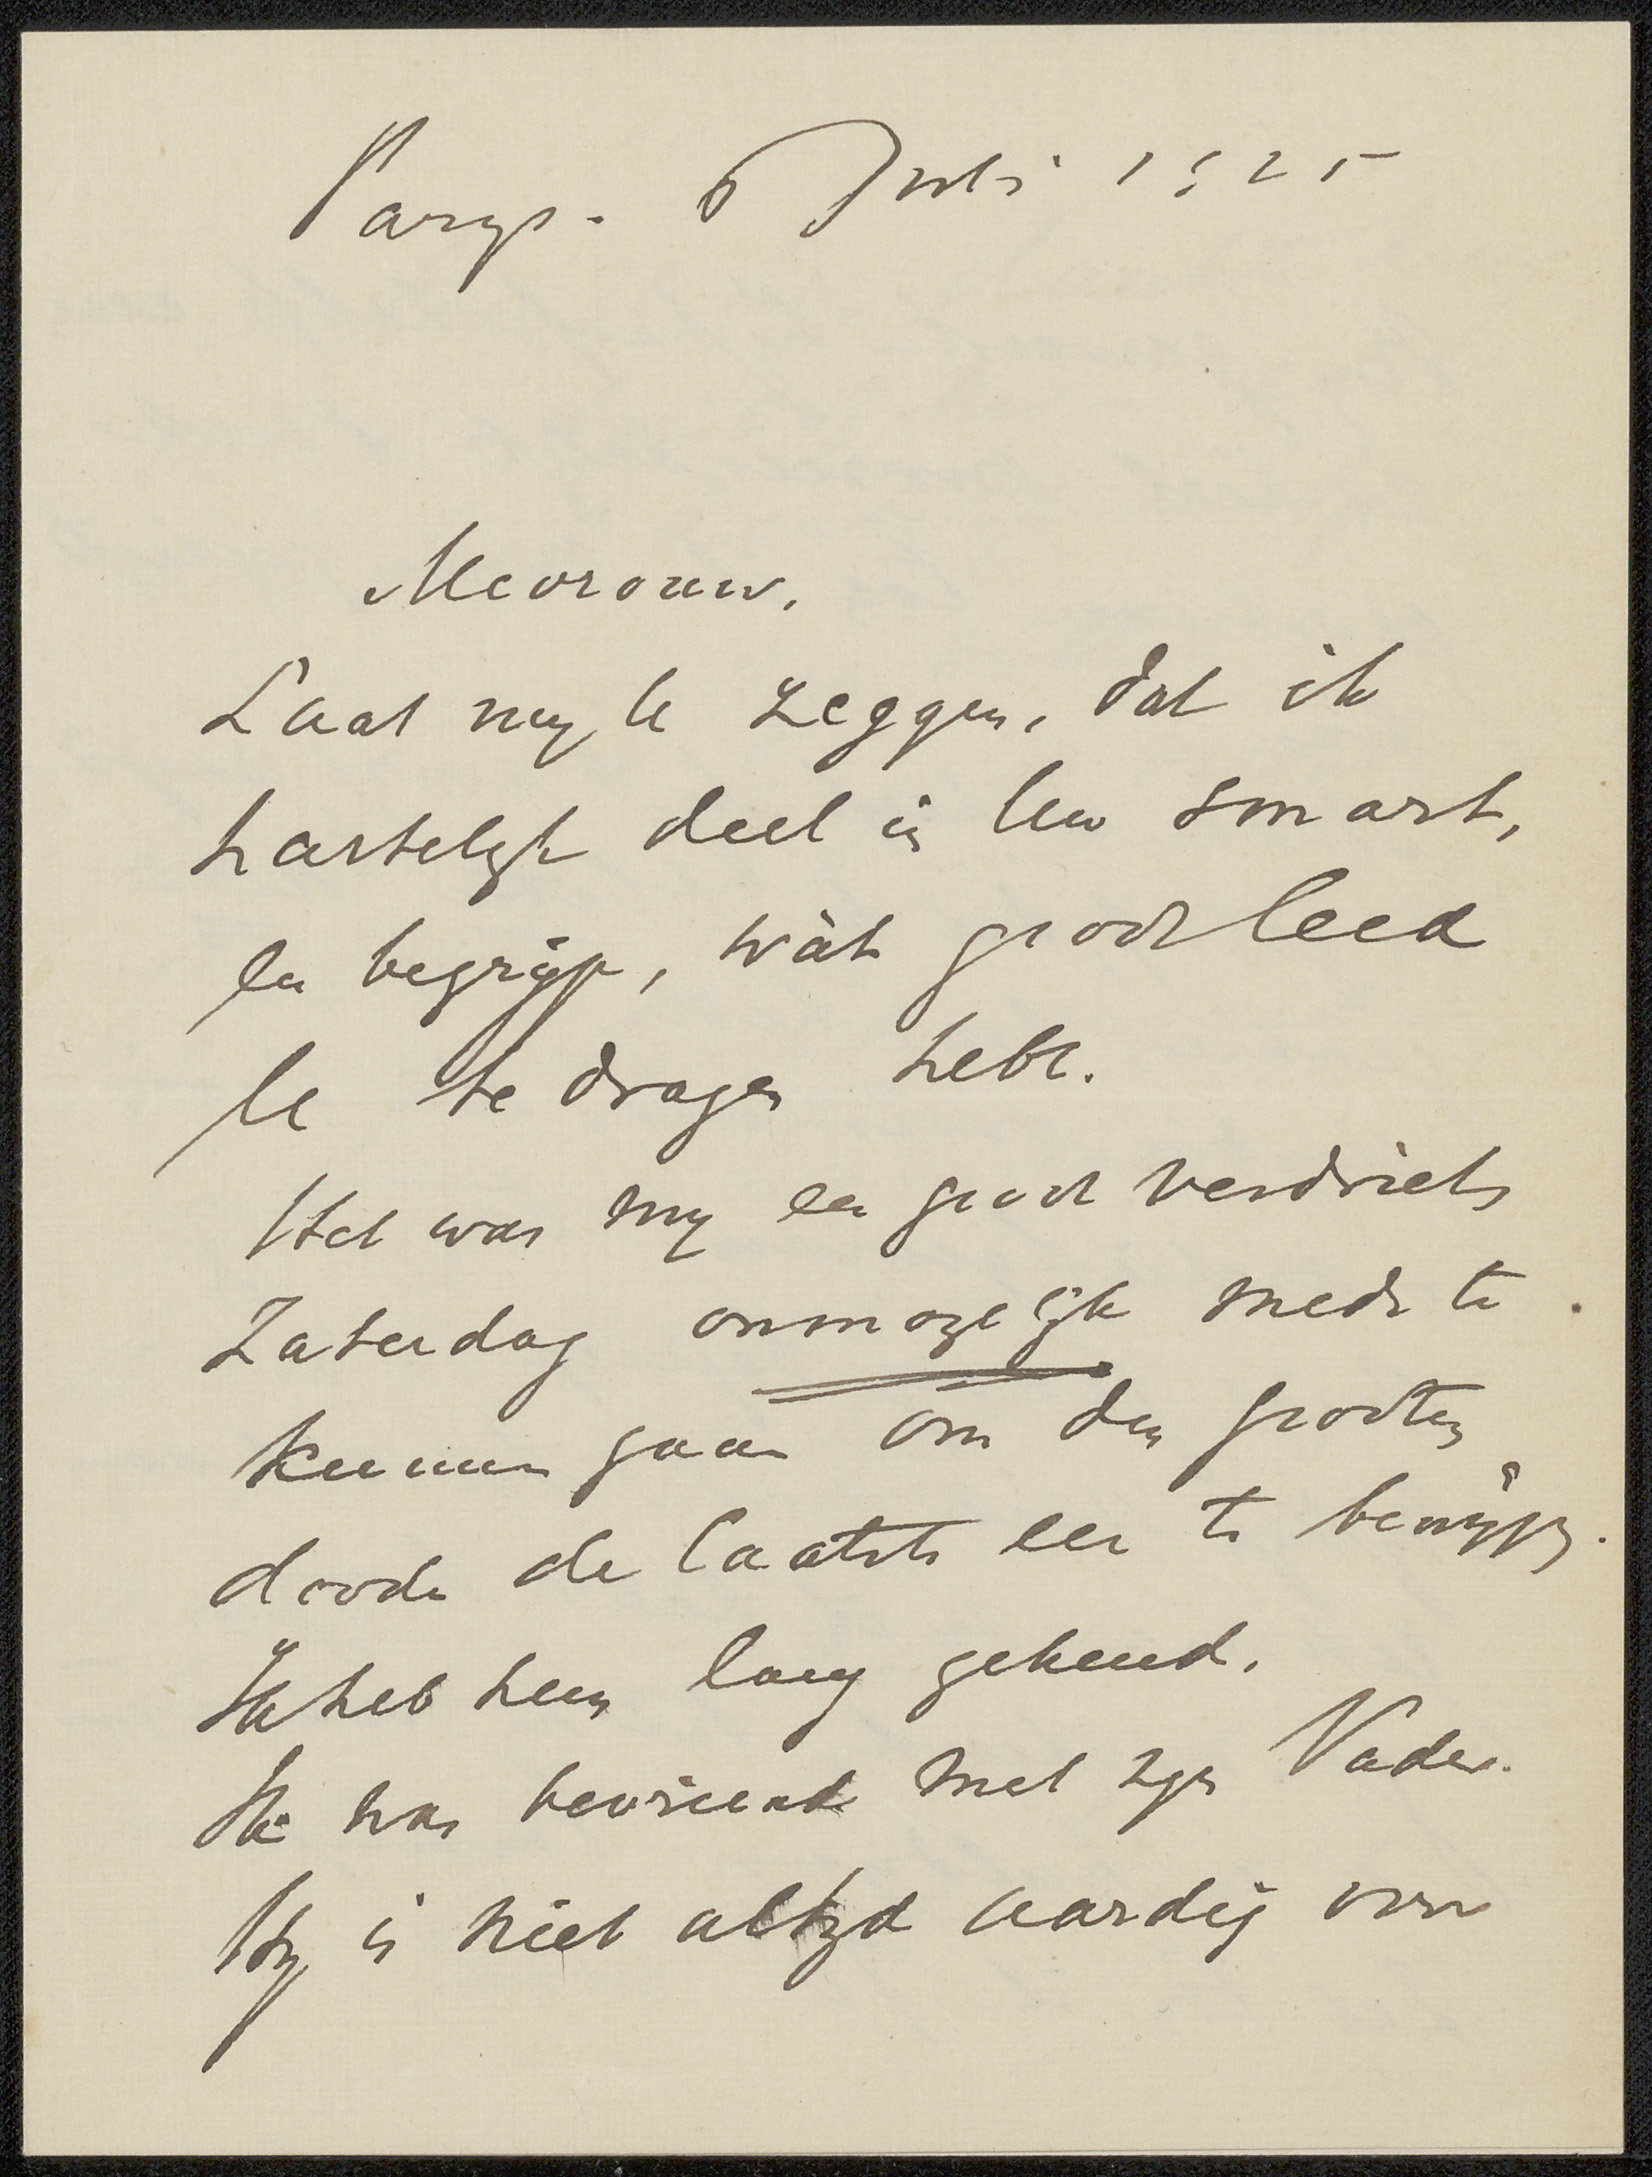 Parijs. 6 Juli 1925
Mevrouw,
Laat mij U zeggen, dat ik
hartelijk deel in Uw smart,
en begrijp, wàt groot leed
U te dragen hebt.
Het was mij een groot verdriet,
Zaterdag onmogelijk mede te
kunnen gaan om den grooten
doode de laatste eer te bewijzen.
Ik heb hem lang gekend.
Ik was bevriend met zijn Vader.
Hij is niet altijd aardig voor